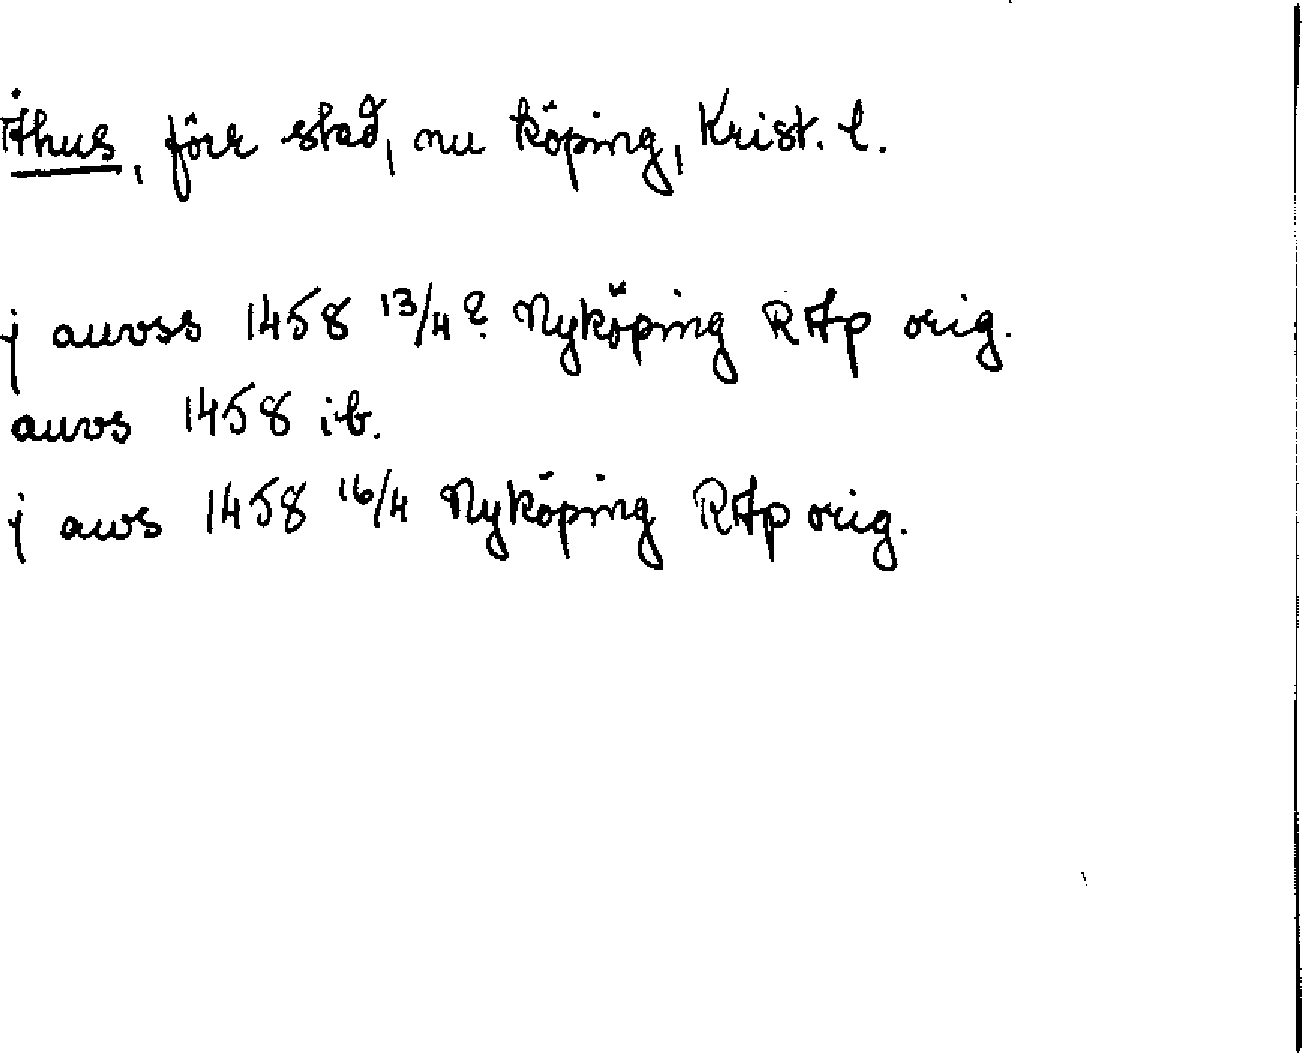 Åhus, förr stad, nu köping, Krist. l.
j auoss 1458 13/4? Nyköping RAp orig.
auos 1458 ib.
j aws 1458 16/4 Nyköping RAp orig.